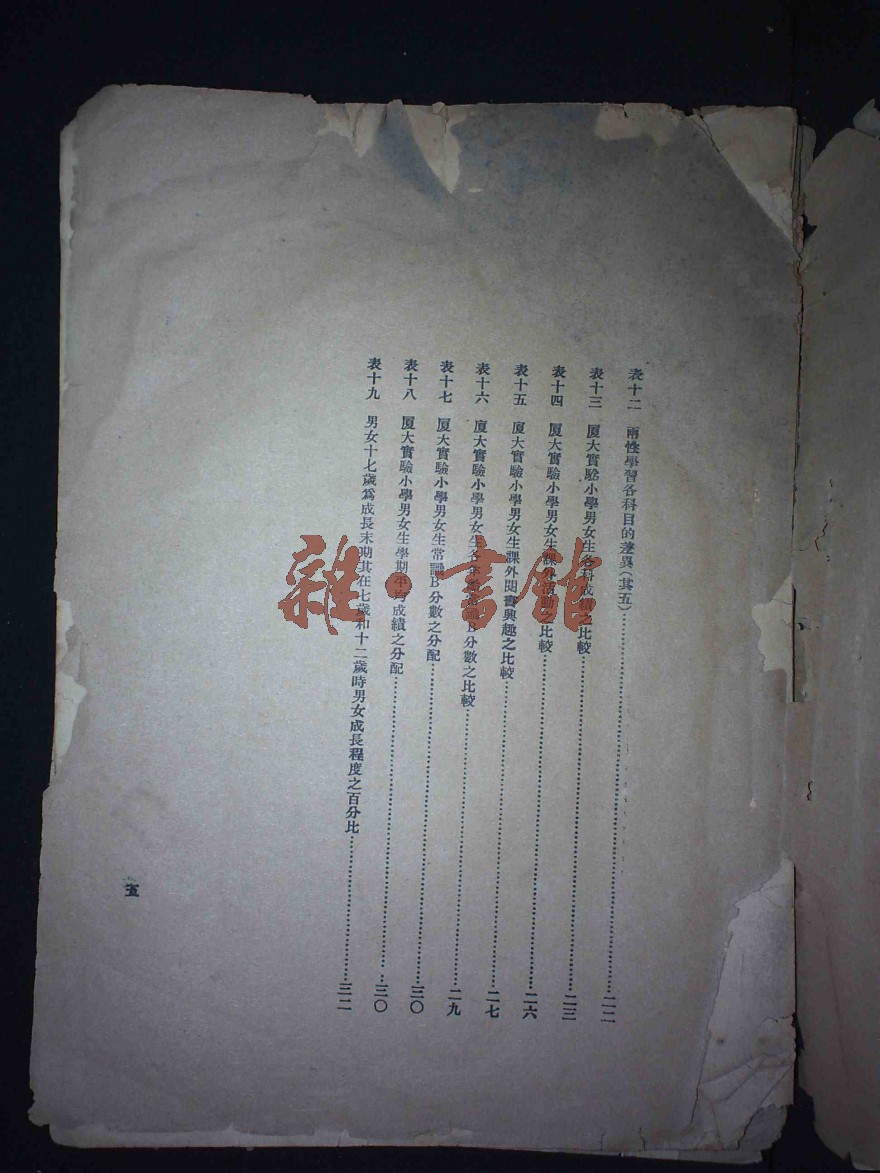 表十二　兩性學習各科目的差異（其五）……二二
表十三　厦大實驗小學男女生各科成績之比較……二三
表十四　厦大實驗小學男女生課外活動之比較……二六
表十五　厦大實驗小學男女生課外閱書興趣之比較……二七
表十六　厦大實驗小學男女生各年 B分數之比較……二九
表十七　厦大實驗小學男女生常識B分數之分配……三〇
表十八　厦大實驗小學男女生學期平均成績之分配……三〇
表十九　男女十七歲爲成長末期其在七歲和十二歲時男女成長程度之百分比……三二
五
雜·書館